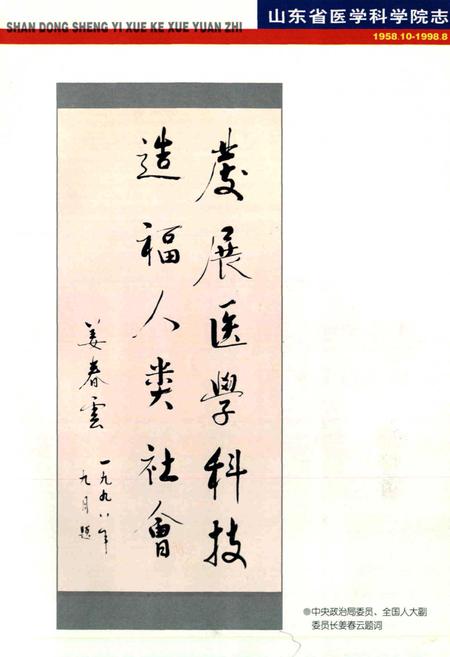 SHAN DONG SHENG YI XUE KE XUE YUAN ZHI
山东省医学科学院志
1958.10-1998.8
發展医學科技
造福人类社會
姜春雲
一九九八年
九月題
中央政治局委员、全国人大副
委员长姜春云题词